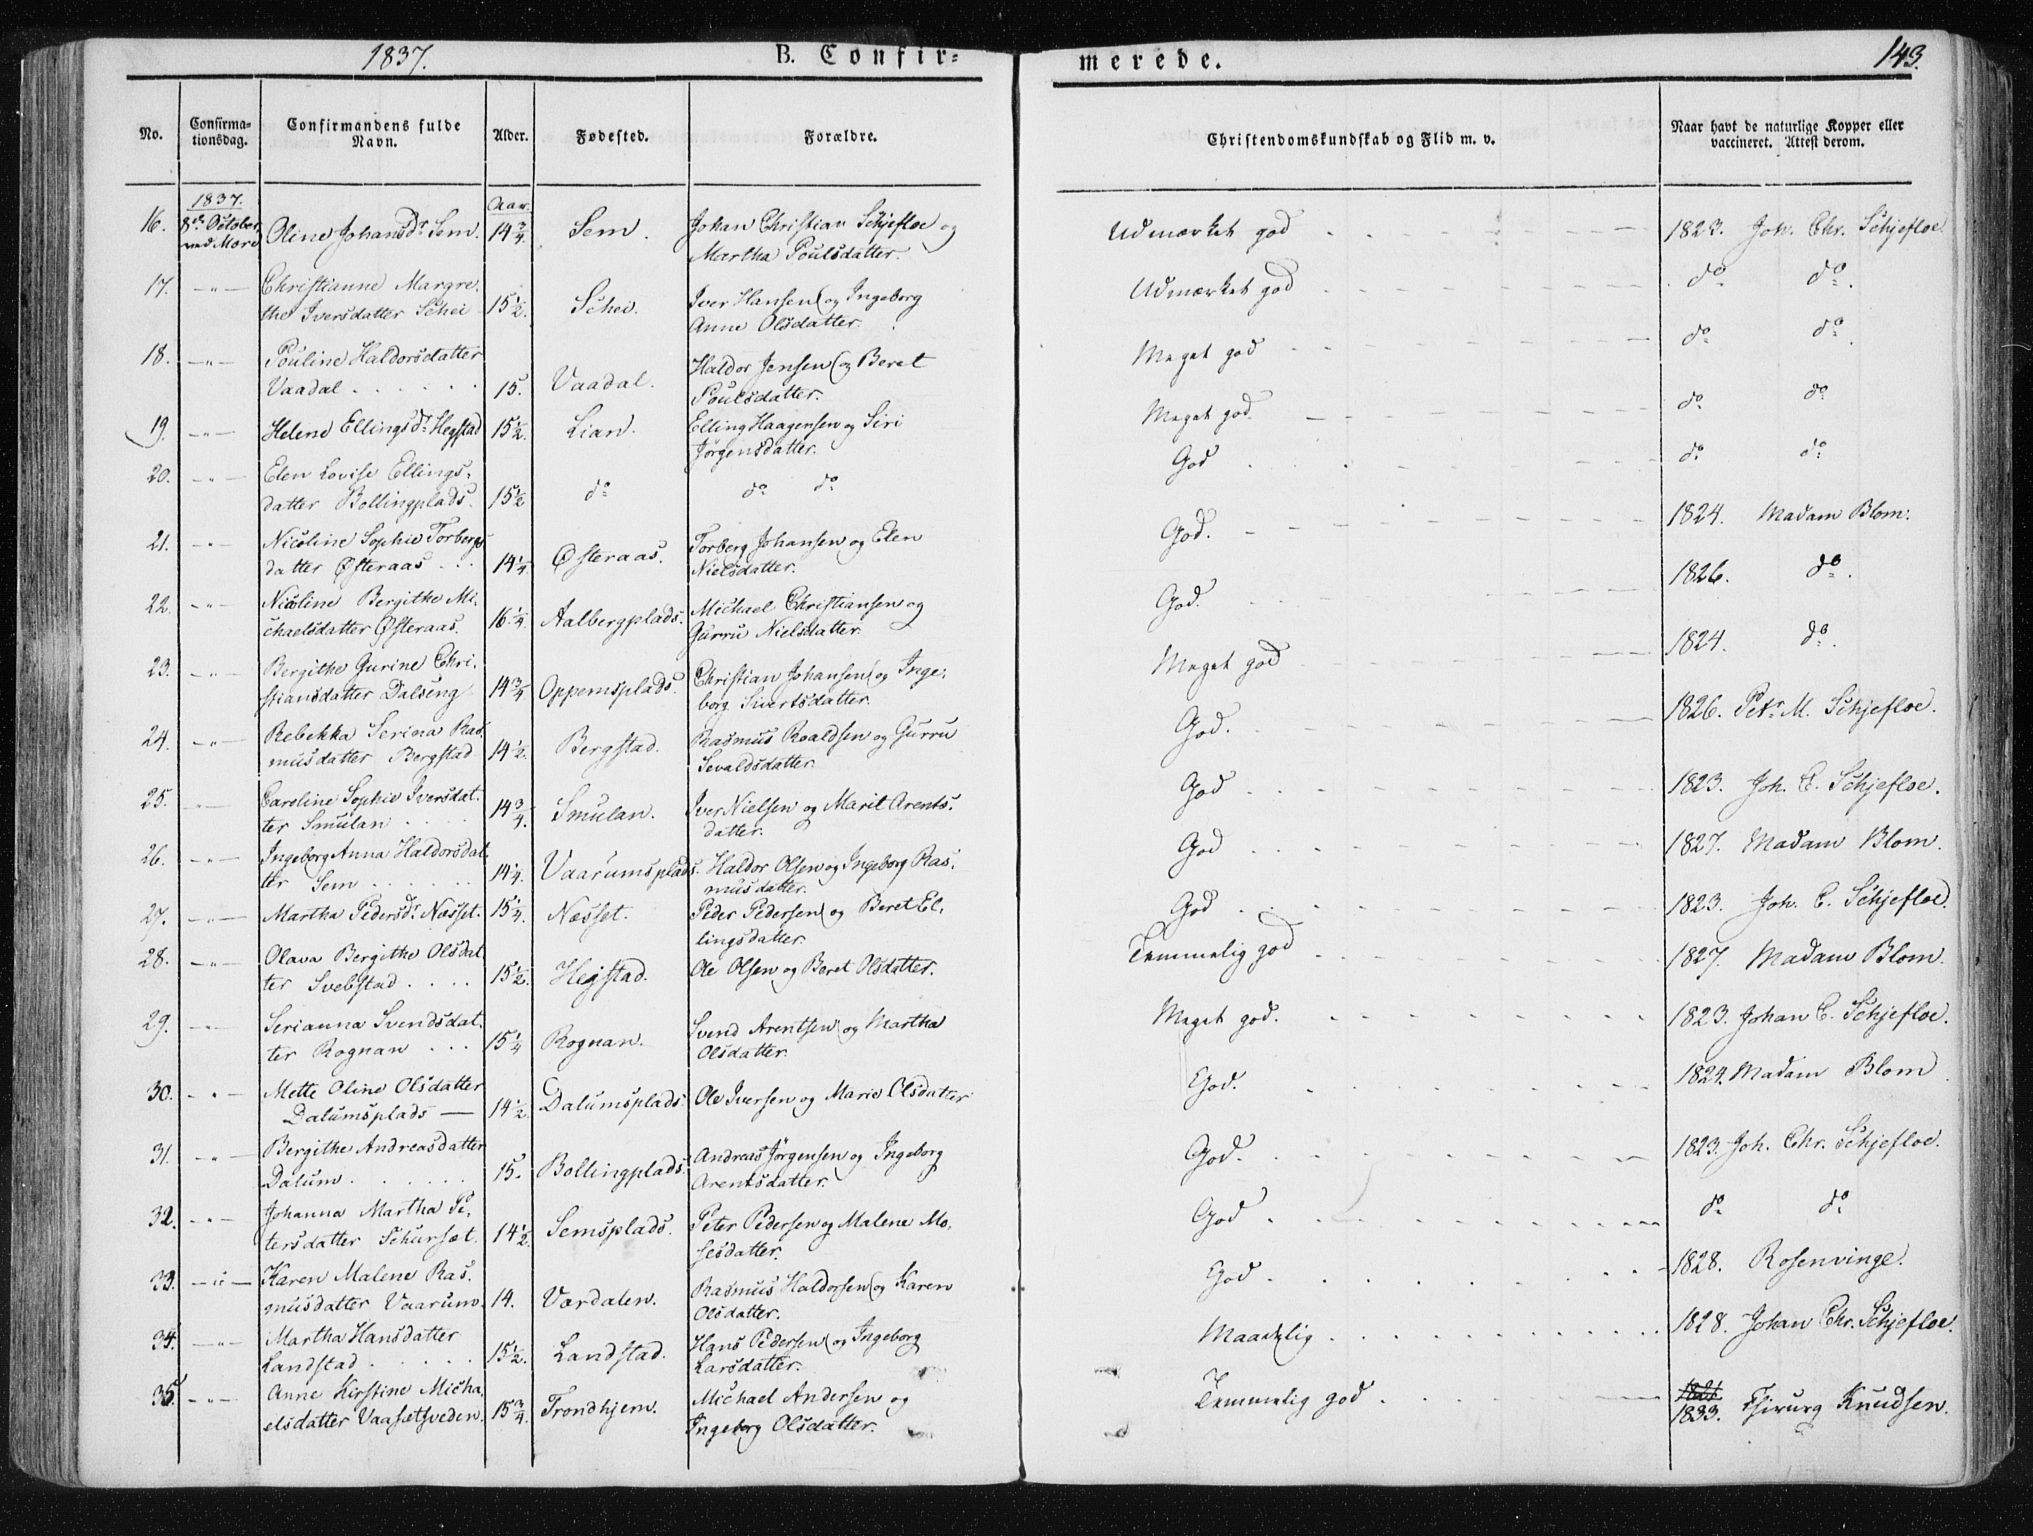 1837. B. Confir= merede. 143.
No. Confirma-tionsdag. Confirmandens fulde Navn. Alder. Fødested. Forældre. Christendomskundskab og Flid m. v. Naar havt de naturlige Kopper eller vaccineret. Attest derom.
1837. Aar.
16. 8de October ved Mære Oline Johansdr Sem. 14 3/4 Sem. Johan Christian Schjefloe og Martha Poulsdatter. Udmærket god 1823. Joh. Chr. Schjefloe
17. -"- Christianne Margrethe Iversdatter Schei 15 1/2. Schei. Iver Hansen og Ingeborg Anne Olsdatter. Udmærket god do do.
18. -"- Pouline Haldorsdatter Vaadal 15. Vaadal. Haldor Jensen og Beret Poulsdatter. Meget god do do.
19. -"- Helene Ellingsdr Hegstad 15 1/2. Lian. Elling Haagensen og Siri Jørgensdatter. Meget god. do do
20. -"- Elen Lovise Ellings-datter Bollingplads. 15 1/2 do do do God do do
21. -"- Nicoline Sophie Torbergsdatter Østeraas 14 1/4 Østeraas. Torberg Johansen og Elen Nielsdatter. God. 1824. Madam Blom.
22. -"- Nicoline Bergithe Michaelsdatter Østeraas. 16 1/4. Aalbergplads. Michael Christiansen og Gurru Nielsdatter. God. 1826. do.
23. -"- Bergithe Gurine Christiansdatter Dalseng 14 3/4 Oppemsplads. Christian Johansen og Ingeborg Sivertsdatter. Meget god 1824. do.
24. -"- Rebekka Serina Rasmusdatter Bergstad 14 1/2. Bergstad. Rasmus Roaldsen og Gurru Sevaldsdatter. God. 1826. Petr M. Schjefloe.
25. -"- Caroline Sophie Iversdatter Smulan 14 3/4. Smulan. Iver Nielsen og Marit Arentsdatter. God 1823. Joh. C. Schjefloe.
26. -"- Ingeborg Anna Haldorsdatter Sem 14 1/4. Vaarumsplads. Haldor Olsen og Ingeborg Rasmusdatter. God 1827. Madam Blom.
27. -"- Martha Pedersdr Næsset. 15 1/4. Næsset. Peder Pedersen og Beret Ellingsdatter. God 1823. Joh. C. Schjefloe.
28. -"- Olava Bergithe Olsdatter Svebstad 15 1/2. Hegstad. Ole Olsen og Beret Olsdatter. Temmelig god 1827. Madam Blom.
29. -"- Serianna Svendsdatter Rognan 15 1/4 Rognan. Svend Arentsen og Martha Olsdatter. Meget god. 1823. Johan C. Schjefloe.
30. -"- Mette Oline Olsdatter Dalumsplads 14 1/2. Dalumsplads. Ole Iversen og Marie Olsdatter God. 1824. Madam Blom
31. -"- Bergithe Andreasdatter Dalum 15. Bollingplads. Andreas Jörgensen og Ingeborg Arentsdatter. God. 1823. Joh. Chr. Schjefloe.
32. -"- Johanna Martha Petersdatter Schurset. 14 1/2. Semsplads. Peter Pedersen og Malene Mosesdatter. God do do
33. -"- Karen Malene Rasmusdatter Vaarum. 14. Værdalen. Rasmus Haldorsen og Karen Olsdatter. God 1828. Rosenvinge.
34. -"- Martha Hansdatter Landstad 15 1/2. Landstad. Hans Pedersen og Ingeborg Larsdatter. Maadelig 1828. Johan Chr. Schjefloe.
35. -"- Anne Kirstine Michaelsdatter Vaassetsveden. 15 3/4. Trondhjem. Michael Andersen og Ingeborg Olsdatter. Temmelig god 1833. Chirurg Knudsen.